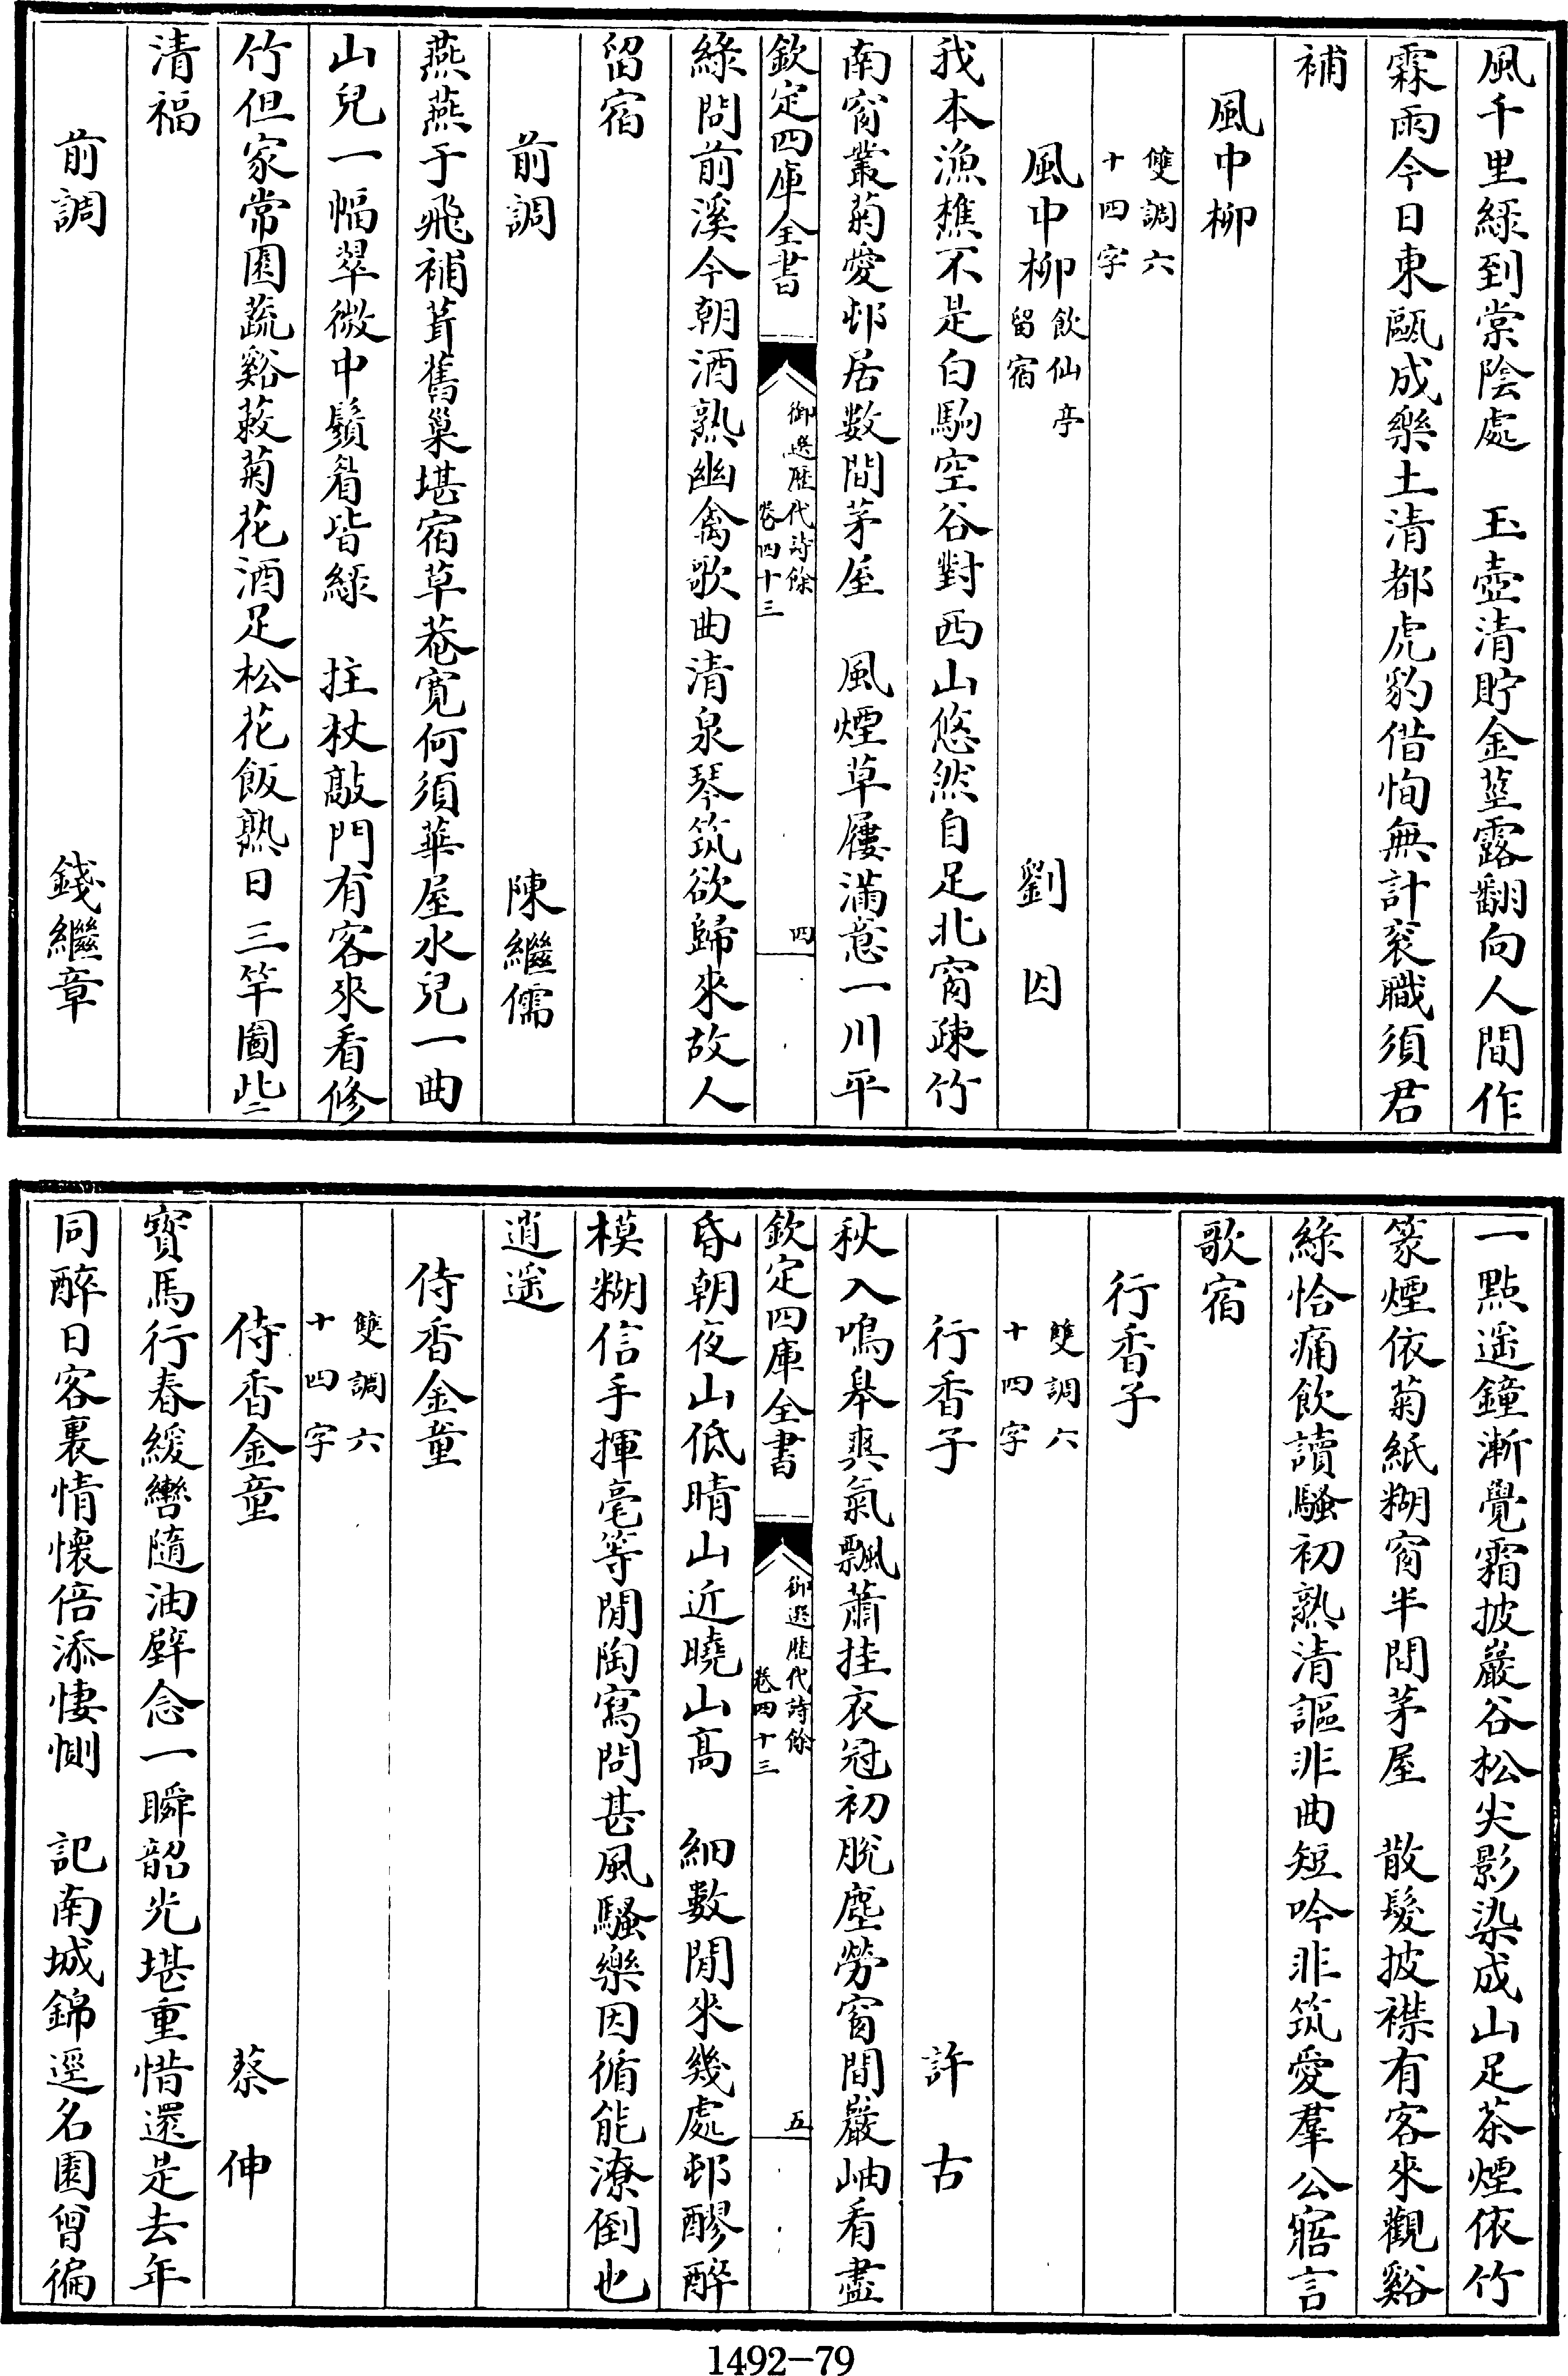 風千里緑到棠陰處　玉壺清貯金莖露翻向人間作
霖雨今日東甌成樂土清都虎豹借恂無計袞職須君
補
風中柳
雙調六
十四字
風中柳飲仙亭留宿　劉因
我本漁樵不是白駒空谷對西山悠然自足北窗疎竹
南窗叢菊愛邨居數間茅屋　風煙草屨滿意一川平
欽定四庫全書　御選歷代詩餘卷四十三　四
綠問前溪今朝酒熟幽禽歌曲清泉琴筑欲歸來故人
留宿
前調　陳繼儒
燕燕于飛補葺舊巢堪宿草菴寛何須華屋水兒一曲
山兒一幅翠微中鬚眉皆緑　拄杖敲門有客來看修
竹但家常園蔬谿蔌菊花酒足松花飯熟日三竿圖些
清福
前調　錢繼章
一點遥鐘漸覺霜披巖谷松尖影染成山足茶煙依竹
篆煙依菊紙糊窗半間茅屋　散髮披襟有客來觀谿
綠恰痛飲讀騷初熟清謳非曲短吟非筑愛羣公寤言
歌宿
行香子
雙調六
十四字
行香子　許古
秋入鳴皋爽氣飄蕭挂衣冠初脫塵勞窗間巖岫看盡
欽定四庫全書　御選歷代詩餘卷四十三　五
昏朝夜山低晴山近曉山高　細數閒來幾處邨醪醉
模糊信手揮毫等閒陶寫問甚風騷樂因循能潦倒也
逍遥
侍香金童
雙調六
十四字
侍香金童　蔡伸
寶馬行春緩轡隨油壁念一瞬韶光堪重惜還是去年
同醉日客裏情懷倍添悽惻　記南城錦逕名園曾徧
1492-79